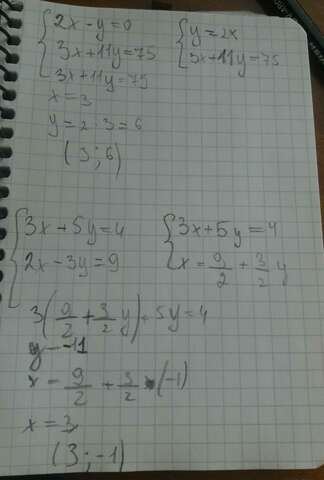 {2x - y = 0 {y = 2x
{3x + 11y = 75 {3x + 11y = 75
3x + 11y = 75
x = 3
y = 2 · 3 = 6
(3 ; 6)
{3x + 5y = 4 {3x + 5y = 4
{2x - 3y = 9 {x = 9/2 + 3/2 y
3(9/2 + 3/2 y) + 5y = 4
x = 9/2 + 3/2 · (-1)
x = 3
(3 ; -1)